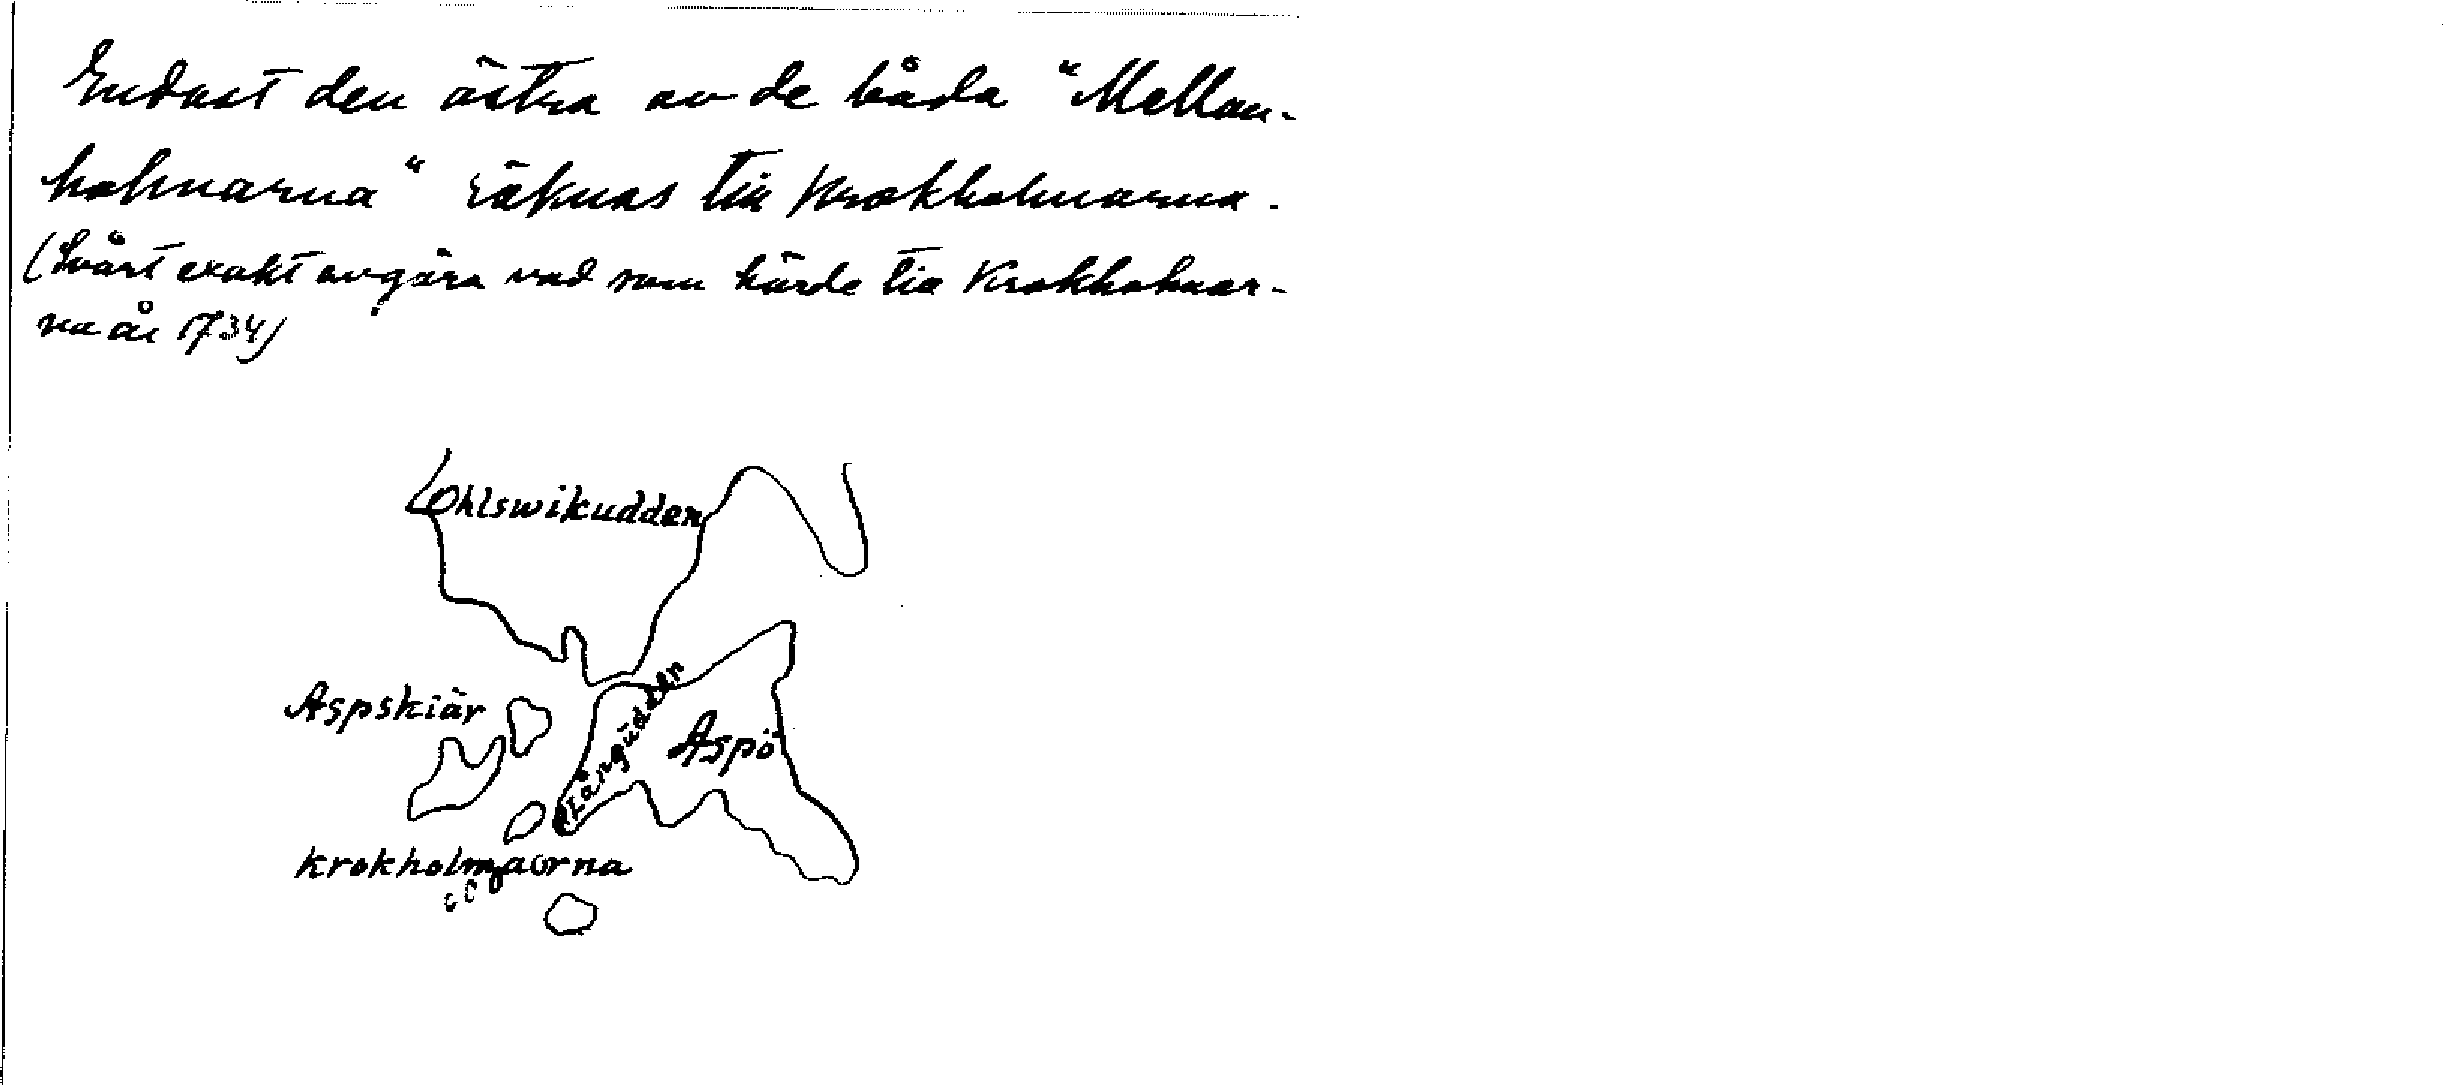 Endast den östra av de båda "Mellan-
holmarna" räknas till Krokholmarna.
(Svårt exakt avgöra vad som hörde till Krokholmar-
na år 1734)
Ohlswikudden
Aspskiär
Långudden
Aspö
Krokholmarna